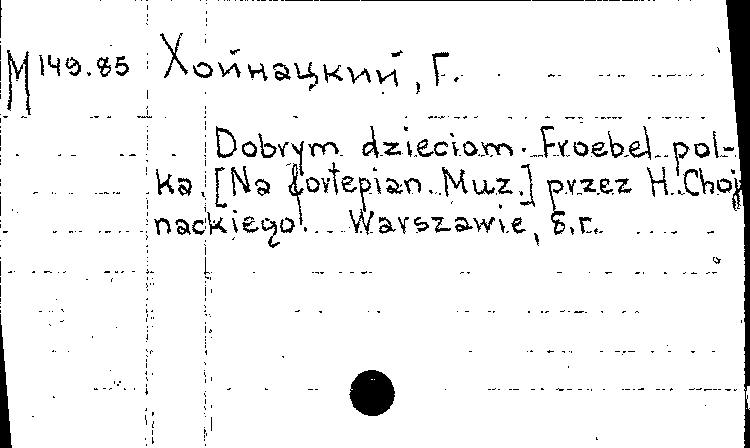 М 149.85 Хойнацкий, Г.
Dobrym dzieciom. Froebel pol-
ka. [Na fortepian. Muz.] przez H. Choj
nackiego. Warszawie, б.г.